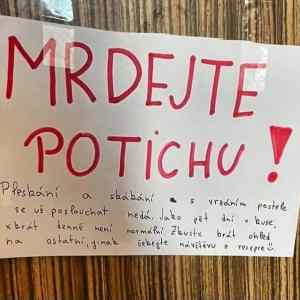 MRDEJTE
POTICHU!
Přesbání a sbábání s vrzáním postele
se už poslouchat nedá. Jako pět dní v kuse,
xkrát denně není normální. Zkuste brát ohled
na ostatní, jinak čekejte návštěvu z recepce